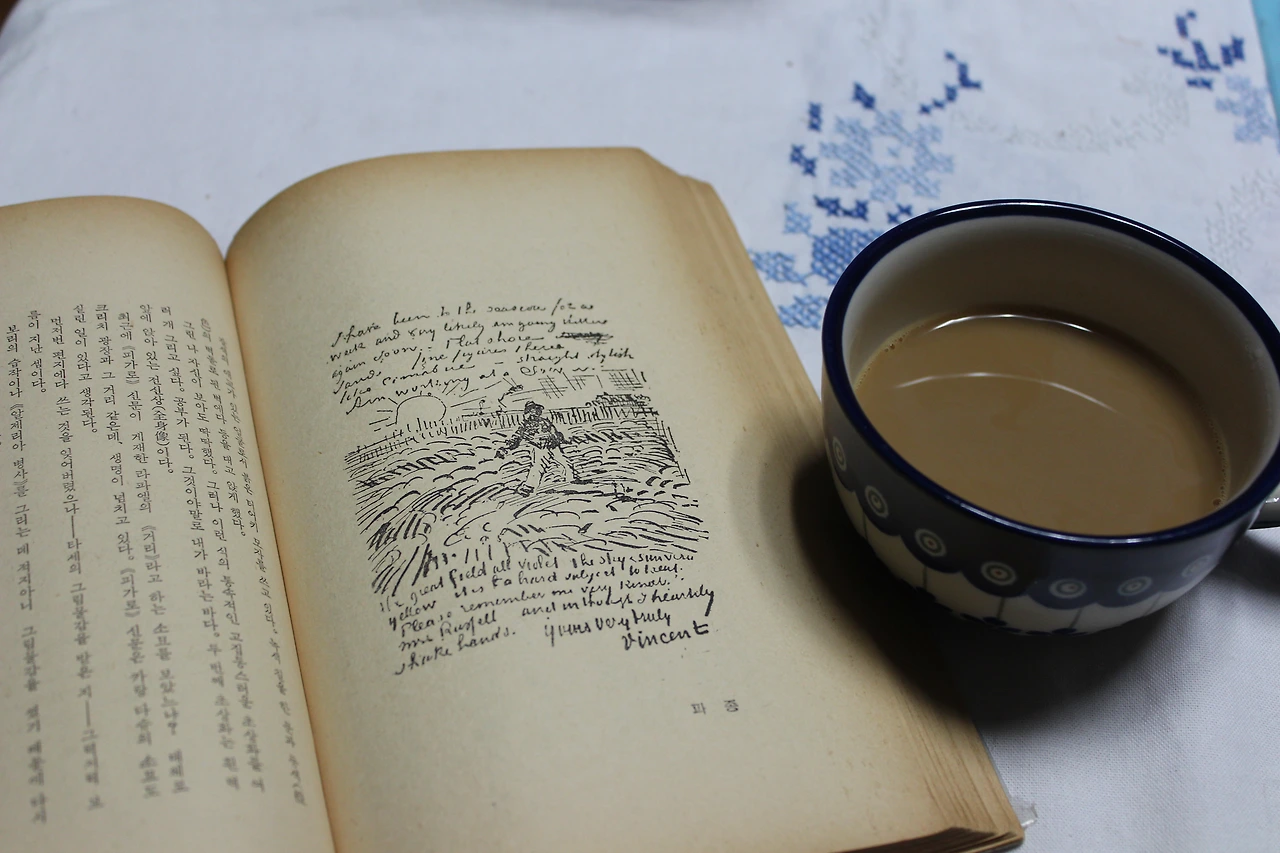 I have been to the seaside for a
week and very likely am going thither
again soon. - Flat shore
sands - fine figures there
like Cimabue - straight stylish
Am working at a Sower.
the great field all violet the sky & sun very
yellow. it is a hard subject to treat.
Please remember me very kindly
Mrs Russell and in thought I heartily
shake hands. yours very truly
Vincent
파 종
벽에다 등을 대고 앉게 했다.
나 자신이 보아도 딱딱했다. 그러나 이런 식의 통속적인 고집통스러운 초상화를 여
러 개 그리고 싶다. 공부가 된다. 그것이야말로 내가 바라는 바다. 두 번째 초상화는 흰 벽
앞에 앉아 있는 전신상(全身像)이다.
최근에 《피가로》 신문이 게재한 라파엘의 《거리》라고 하는 소묘를 보았느냐? 대체로
크리치 광장과 그 거리 같은데, 생명이 넘치고 있다. 《피가로》 신문은 카랑 다슈의 소묘도
실린 일이 있다고 생각된다.
먼저번 편지에다 쓰는 것을 잊어버렸으나——타세의 그림물감을 받은 지——그럭저럭 보
름이 지난 셈이다.
보리의 습작이나 《알제리아 병사》를 그리는 데 적지아니 그림물감을 썼기 때문에 다시